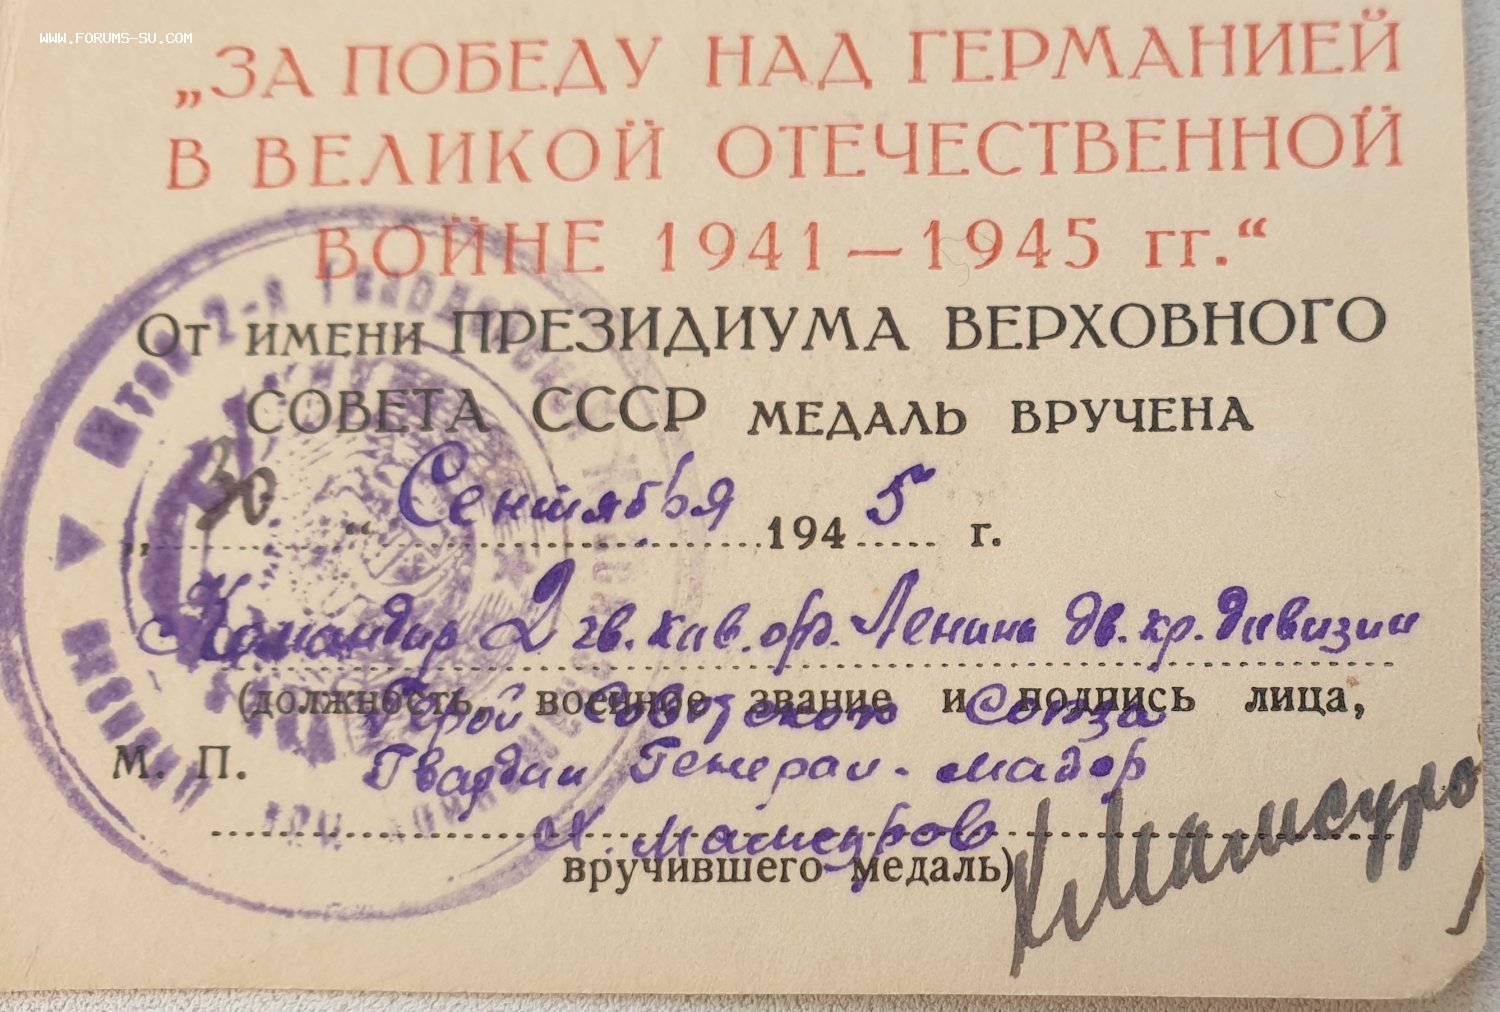 WWW.FORUMS-SU.COM
„ЗА ПОБЕДУ НАД ГЕРМАНИЕЙ
В ВЕЛИКОЙ ОТЕЧЕСТВЕННОЙ
ВОЙНЕ 1941—1945 гг.“
От имени ПРЕЗИДИУМА ВЕРХОВНОГО
СОВЕТА СССР МЕДАЛЬ ВРУЧЕНА
„30“ Сентября 1945 г.
Командир 2 гв. кав. орд. Ленина дв. кр. дивизии
(должность, военное звание и подпись лица,
Герой Советского Союза
М. П.
Гвардии Генерал-майор
Х. Мамсуров
вручившего медаль)
Х Мамсуров
Штаб 2-й Гвардейской